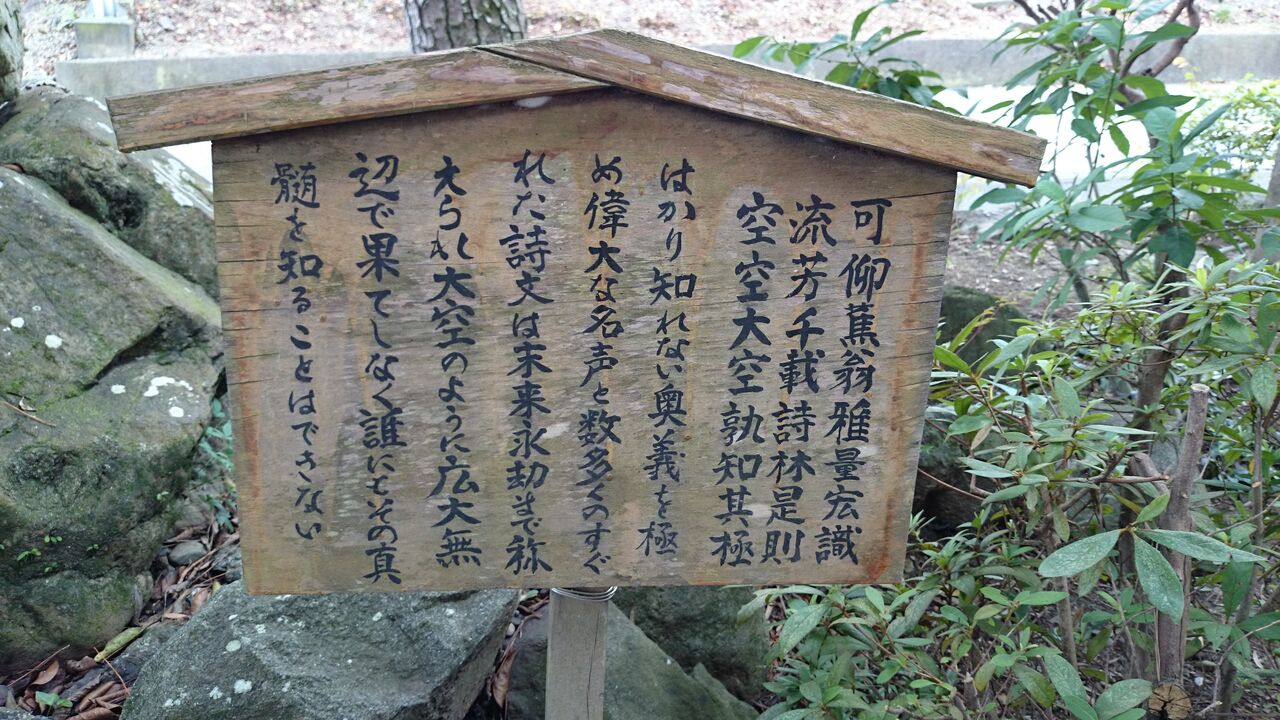 可仰蕉翁雅量宏識
流芳千載詩林是則
空空空大空孰知其極
はかり知れない奥義を極
め偉大な名声と数多くのすぐ
れた詩文は末来永劫まで称
えられ大空のように広大無
辺で果てしなく誰にもその真
髄を知ることはできない